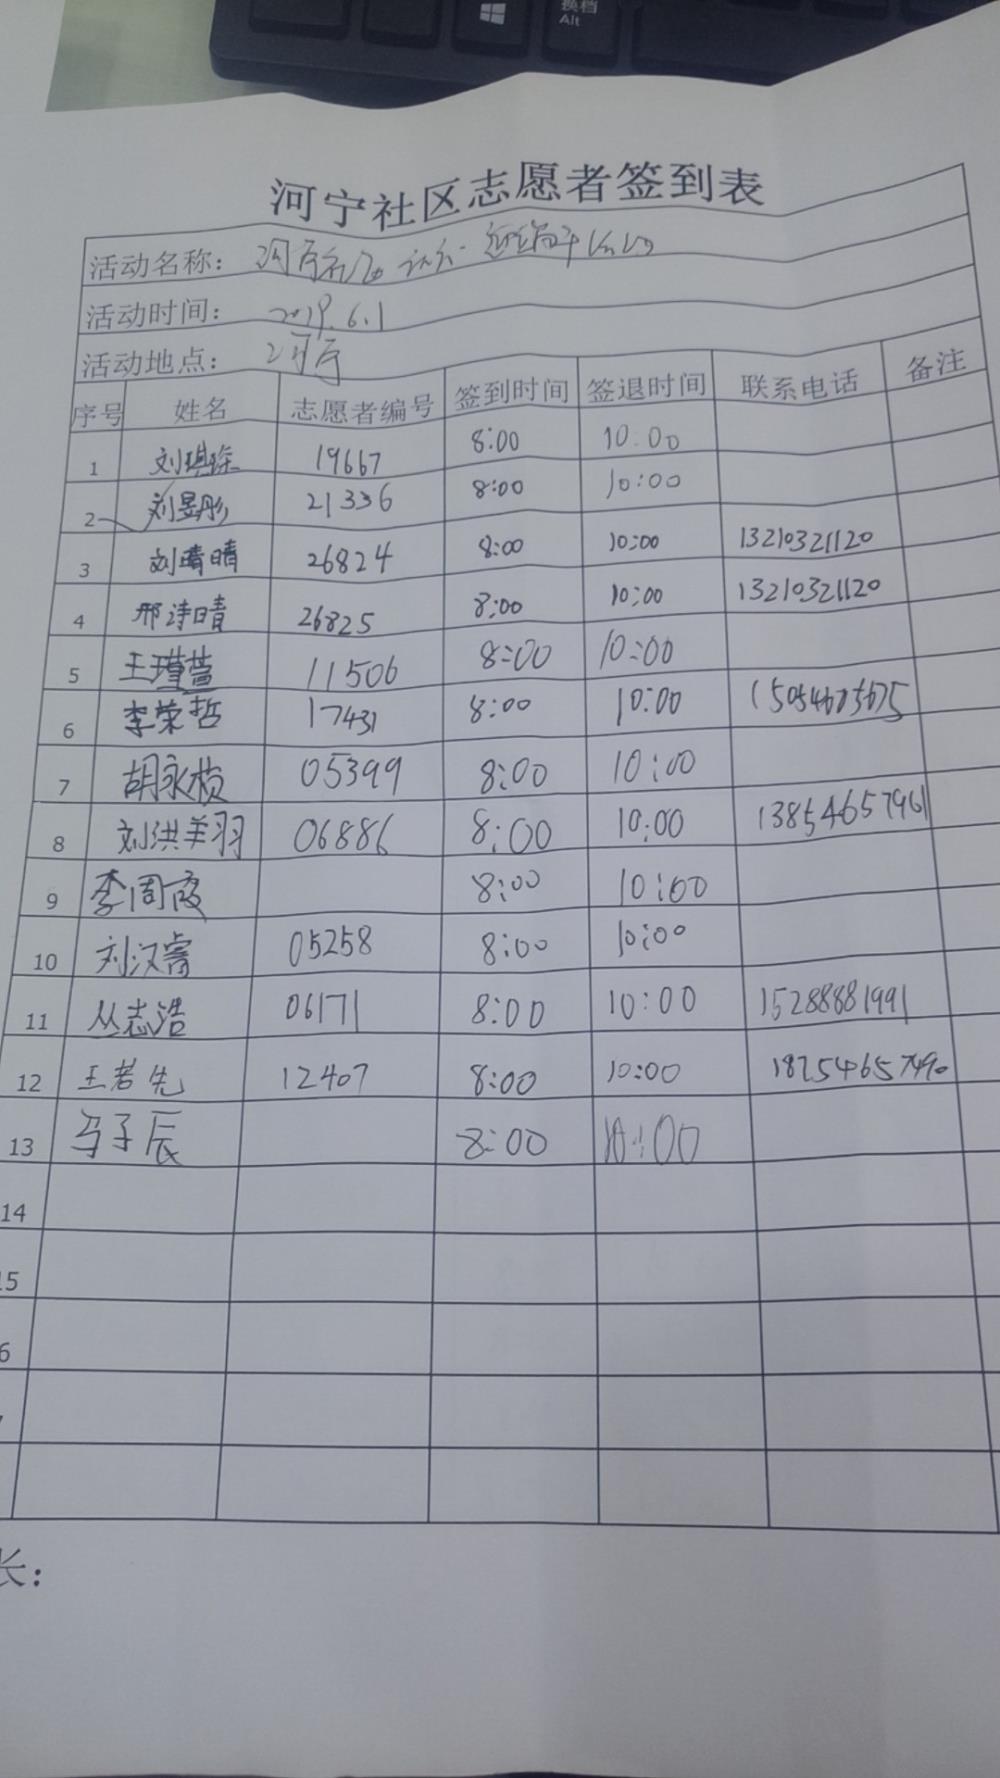 换档
Alt
河宁社区志愿者签到表
活动名称：
活动时间： 2019.6.1
活动地点：
序号 姓名 志愿者编号 签到时间 签退时间 联系电话 备注
1 刘琪琮 19667 8:00 10:00
2 刘昱彤 21336 8:00 10:00
3 刘晴晴 26824 8:00 10:00 13210321120
4 邢诗晴 26825 8:00 10:00 13210321120
5 王瑾萱 11506 8:00 10:00
6 李荣哲 17431 8:00 10:00
7 胡永桢 05399 8:00 10:00
8 刘洪羽 06886 8:00 10:00 13854657961
9 李周霞 8:00 10:00
10 刘汉睿 05258 8:00 10:00
11 丛志浩 06171 8:00 10:00 15288881991
12 王若先 12407 8:00 10:00 18254657490
13 马子辰 8:00 10:00
14
15
长：